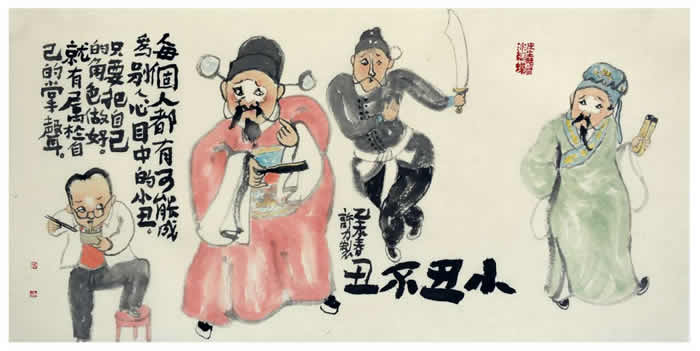 每個人都有可能成
為別人心目中的小丑。
只要把自己
的角色做好。
就有屬於自
己的掌聲。
小丑不丑
乙未春